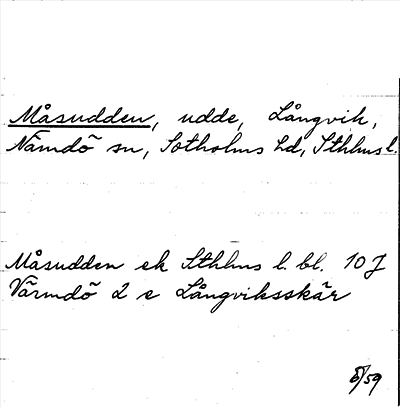 Måsudden, udde, Långvik,
Nämdö sn, Sotholms hd, Sthlms l.
Måsudden ek Sthlms l. bl. 10 J
Värmdö 2 e Långviksskär
/59